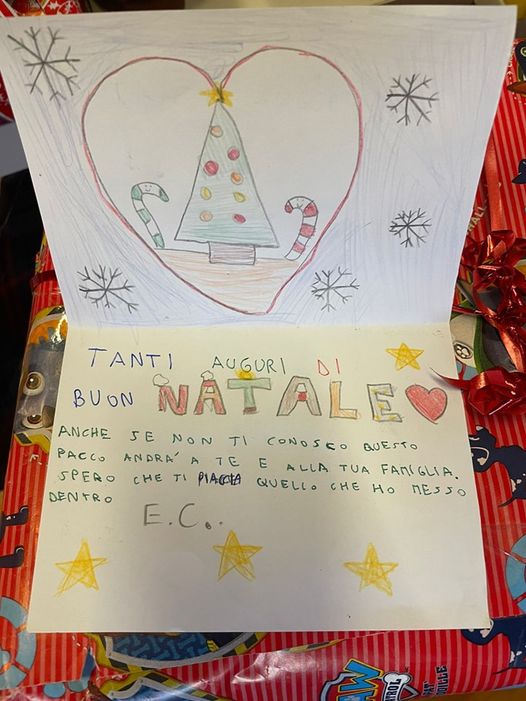 TANTI AUGURI DI
BUON NATALE
ANCHE SE NON TI CONOSCO QUESTO
PACCO ANDRA' A TE E ALLA TUA FAMIGLIA.
SPERO CHE TI PIACCIA QUELLO CHE HO MESSO
DENTRO
E.C..